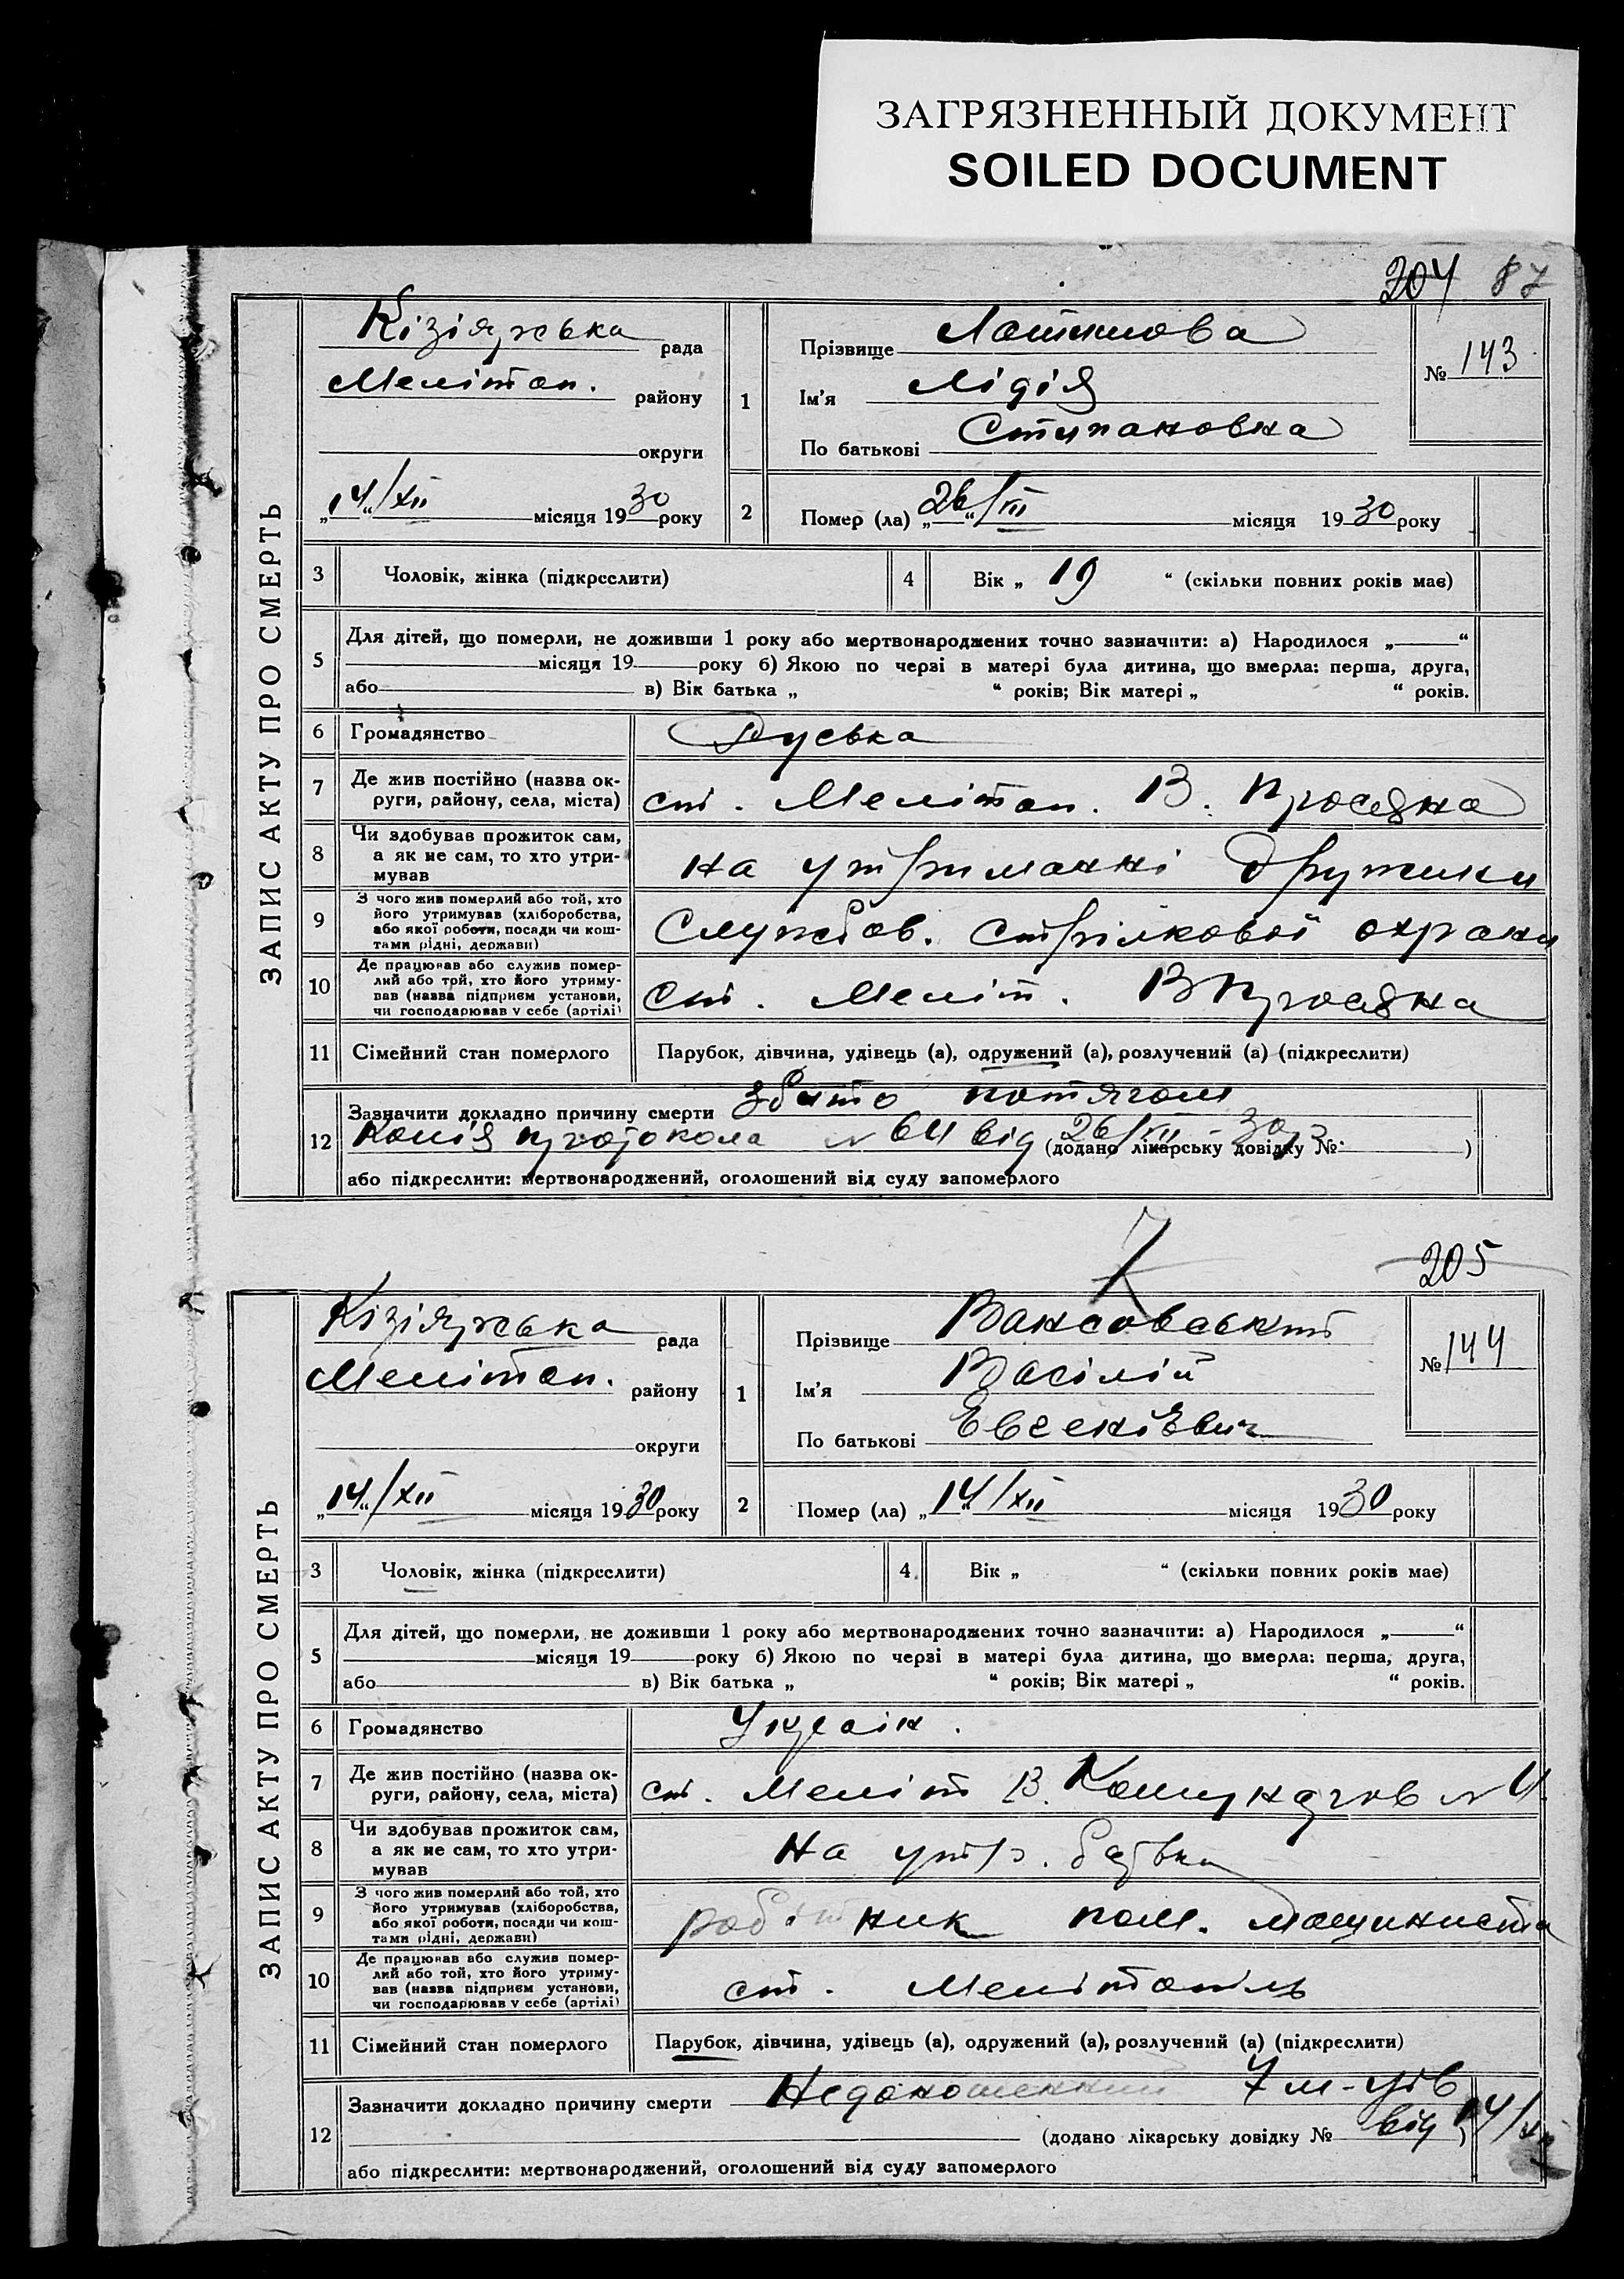 ЗАГРЯЗНЕННЫЙ ДОКУМЕНТ
SOILED DOCUMENT
204 87
ЗАПИС АКТУ ПРО СМЕРТЬ
Кізіярська рада
Меліtоп. району
округи
„14“/XII місяця 1930 року
1
Прізвище
Ім'я Лідія
По батькові Степановна
№ 143
2 Помер (ла) „26“/III місяця 1930 року
3 Чоловік, жінка (підкреслити)
4 Вік „ 19 “ (скільки повних років має)
5 Для дітей, що померли, не доживши 1 року або мертвонароджених точно зазначити: а) Народилося „ “
місяця 19 року б) Якою по черзі в матері була дитина, що вмерла: перша, друга,
або в) Вік батька „ “ років; Вік матері „ “ років.
6 Громадянство Руська
7 Де жив постійно (назва ок-
руги, району, села, міста) ст. Меліtоп. В. Просяна
8 Чи здобував прожиток сам,
а як не сам, то хто утри-
мував на утриманні дружини
9 З чого жив померлий або той, хто
його утримував (хліборобства,
або якої роботи, посади чи кош-
тами рідні, держави) Службов. стрілкової охрани
10 Де працював або служив помер-
лий або той, хто його утриму-
вав (назва підприєм установи,
чи господарював у себе (артілі) ст. Меліт. В Просяна
11 Сімейний стан померлого Парубок, дівчина, удівець (а), одружений (а), розлучений (а) (підкреслити)
12 Зазначити докладно причину смерти Збито потягом
Копія протокола № 64 від 26/ 30 р. (додано лікарську довідку № )
або підкреслити: мертвонароджений, оголошений від суду запомерлого
7
205
ЗАПИС АКТУ ПРО СМЕРТЬ
Кізіярська рада
Меліtоп. району
округи
„14“/XII місяця 1930 року
1
Прізвище Вансовський
Ім'я Васілій
По батькові
№ 144
2 Помер (ла) „14“/XII місяця 1930 року
3 Чоловік, жінка (підкреслити)
4 Вік „ “ (скільки повних років має)
5 Для дітей, що померли, не доживши 1 року або мертвонароджених точно зазначити: а) Народилося „ “
місяця 19 року б) Якою по черзі в матері була дитина, що вмерла: перша, друга,
або в) Вік батька „ “ років; Вік матері „ “ років.
6 Громадянство Україн.
7 Де жив постійно (назва ок-
руги, району, села, міста) ст. Меліт В. № 4.
8 Чи здобував прожиток сам,
а як не сам, то хто утри-
мував на утр. батька
9 З чого жив померлий або той, хто
його утримував (хліборобства,
або якої роботи, посади чи кош-
тами рідні, держави) робітник пом. машиниста
10 Де працював або служив помер-
лий або той, хто його утриму-
вав (назва підприєм установи,
чи господарював у себе (артілі) ст. Мелітопіль
11 Сімейний стан померлого Парубок, дівчина, удівець (а), одружений (а), розлучений (а) (підкреслити)
12 Зазначити докладно причину смерти Недоношенний 7 м-ців
(додано лікарську довідку № від 14/XII )
або підкреслити: мертвонароджений, оголошений від суду запомерлого